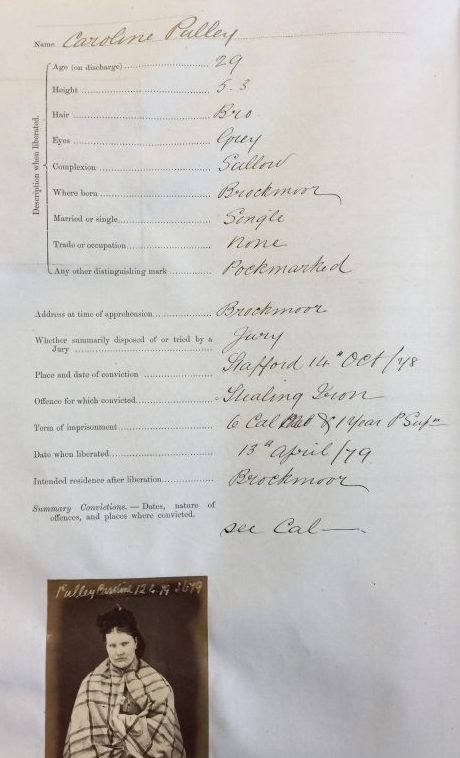 Name Caroline Pulley
Description when liberated.
Age (on discharge) 29
Height 5-3
Hair Bro
Eyes Grey
Complexion Sallow
Where born Brockmoor
Married or single Single
Trade or occupation none
Any other distinguishing mark Pockmarked
Address at time of apprehension Brockmoor
Whether summarily disposed of or tried by a
Jury Jury
Place and date of conviction Stafford 14th Oct /78
Offence for which convicted Stealing Iron
Term of imprisonment 6 Cal & 1 Year P Supn
Date when liberated 13th April /79
Intended residence after liberation Brockmoor
Summary Convictions. — Dates, nature of
offences, and places where convicted.
see Cal—
Pulley Caroline 12 4 79